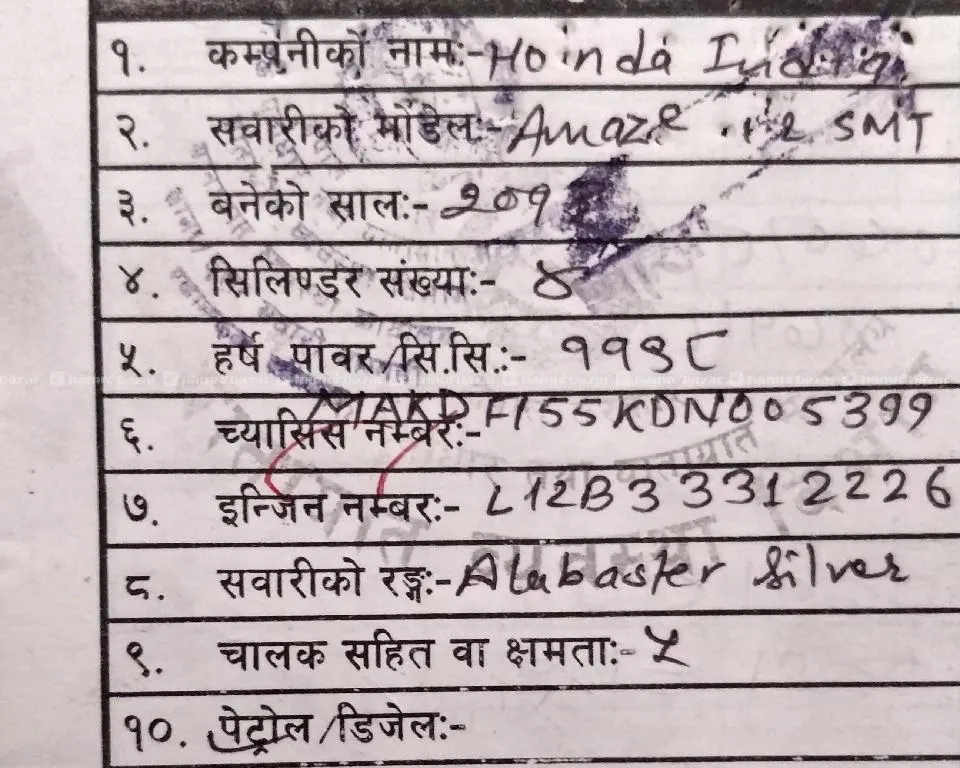 १. कम्पनीको नामः- Honda India
२. सवारीको मोडेलः- Amaze 1.2 SMT
३. बनेको सालः- २०१
४. सिलिण्डर संख्याः- ४
५. हर्ष पावर/सि.सि.:- ११९८
६. च्यासिस नम्बरः- MAKDF155KDN005399
७. इन्जिन नम्बरः- L12B33312226
८. सवारीको रङ्गः- Alabaster Silver
९. चालक सहित वा क्षमताः- ५
१०. पेट्रोल/डिजेलः-